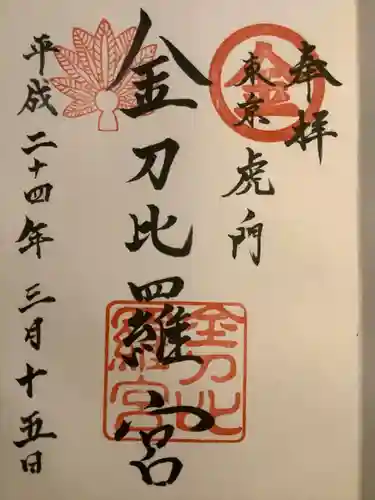 奉拝
東京
虎門
金
金刀比羅宮
金刀比
羅宮
平成二十四年三月十五日